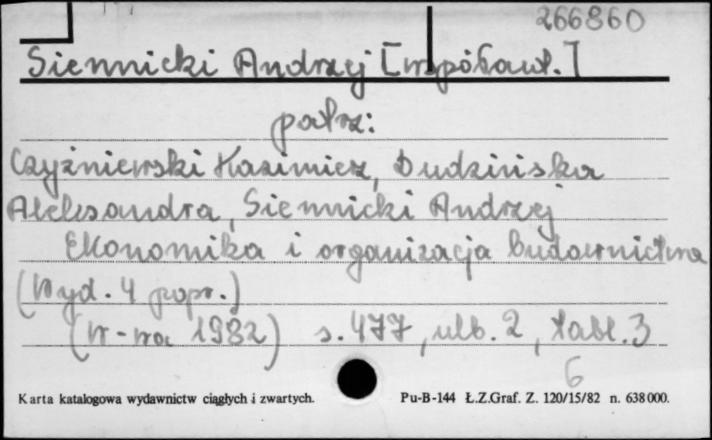 266860
Siennicki Andrzej [współaut.]
patrz:
Czyżniewski Kazimierz, Dudzińska
Aleksandra, Siennicki Andrzej
Ekonomika i organizacja budownictwa
(Wyd. 4 popr.)
(W-wa 1982) s. 477, ulb. 2, tabl. 3
6
Karta katalogowa wydawnictw ciągłych i zwartych. Pu-B-144 Ł.Z.Graf. Z. 120/15/82 n. 638000.